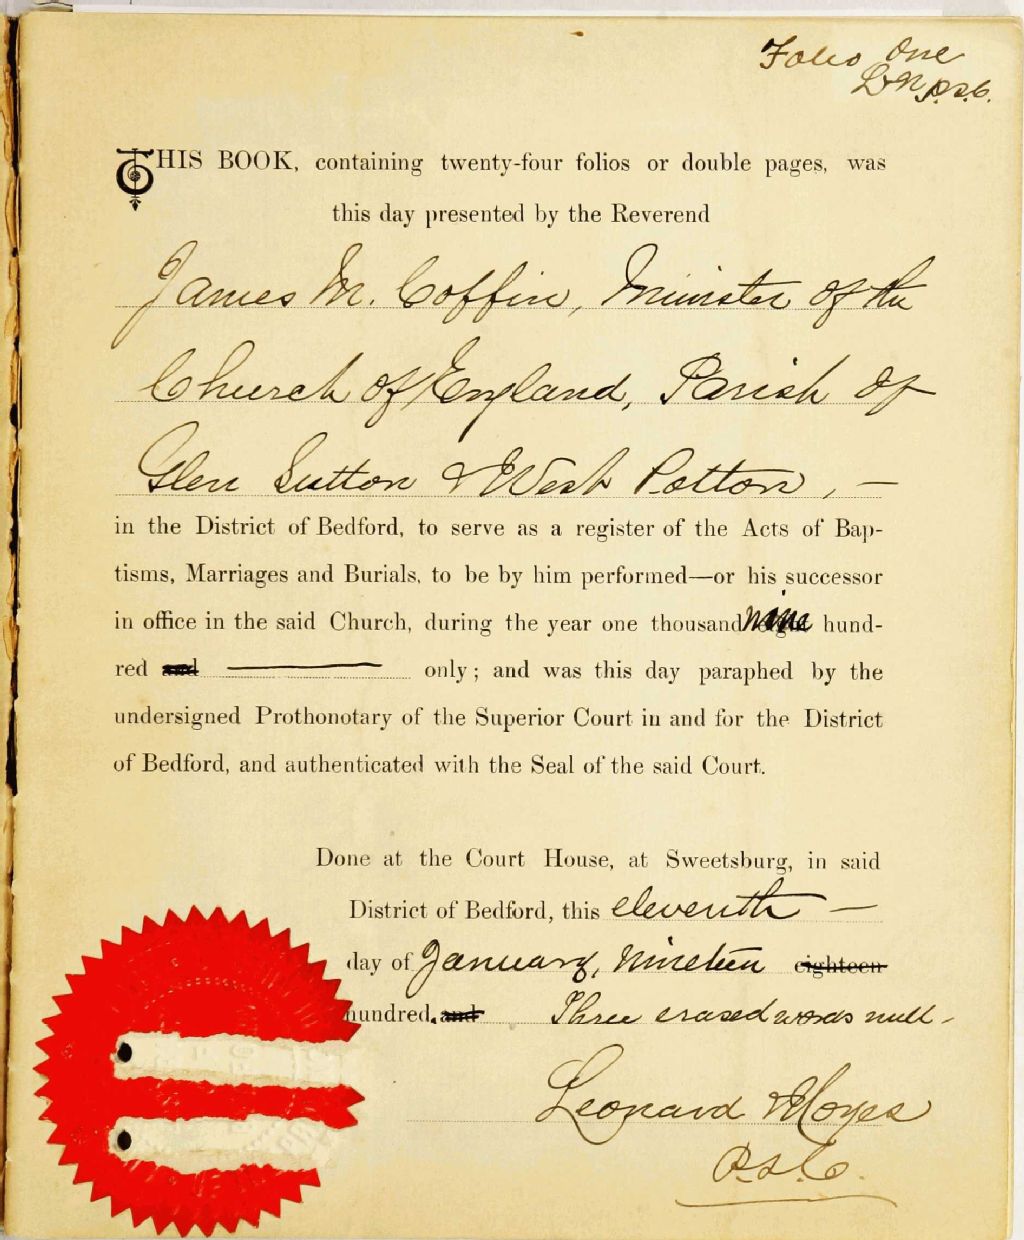 Folio One
L N P.S.C.
THIS BOOK, containing twenty-four folios or double pages, was
this day presented by the Reverend
James M. Coffin, Minister of the
Church of England, Parish of
Glen Sutton & West Potton, —
in the District of Bedford, to serve as a register of the Acts of Bap-
tisms, Marriages and Burials, to be by him performed—or his successor
in office in the said Church, during the year one thousand nine hund-
red and —— only; and was this day paraphed by the
undersigned Prothonotary of the Superior Court in and for the District
of Bedford, and authenticated with the Seal of the said Court.
Done at the Court House, at Sweetsburg, in said
District of Bedford, this eleventh —
day of January, nineteen eighteen
hundred. and Three erased words null.
Leonard
P.S.C.